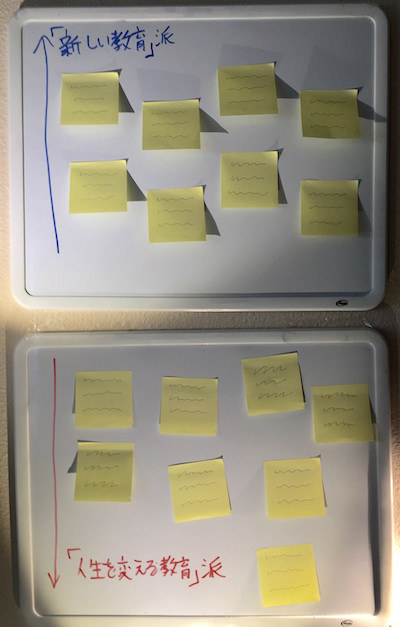 「新しい教育」派
「人生を変える教育」派